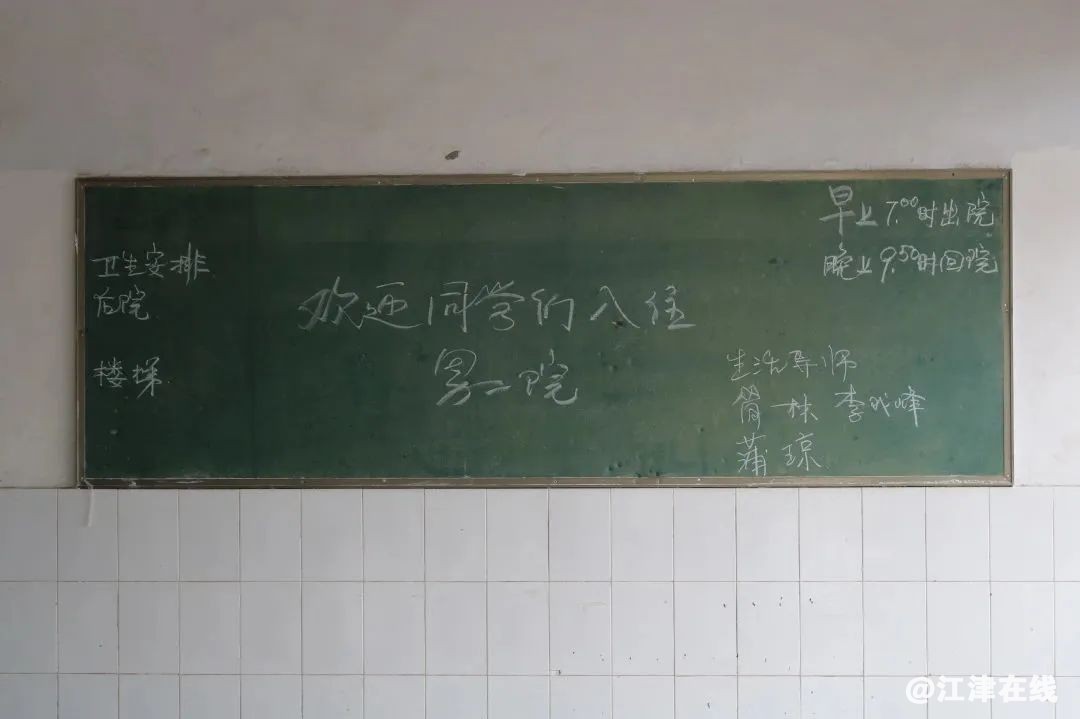 卫生安排
后院
楼梯
欢迎同学们入住
男二院
早上7:00时出院
晚上9:50时回院
生活导师
李成峰
蒲琼
@江津在线